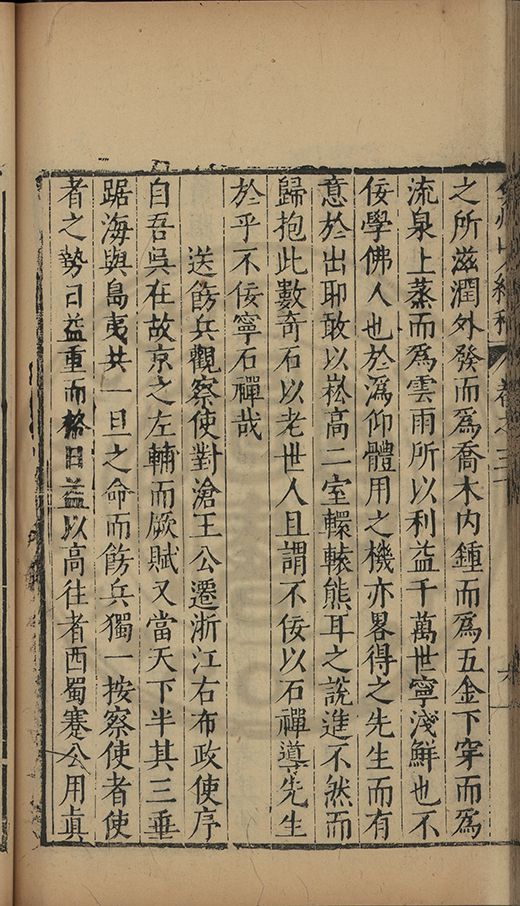 之所滋潤外發而爲喬木内鍾而爲五金下穿而爲
流泉上蒸而爲雲雨所以利益千萬世寧淺鮮也不
佞學佛人也於潙仰體用之機亦畧得之先生而有
意於出耶敢以崧高二室轘轅熊耳之說進不然而
歸抱此數奇石以老世人且謂不佞以石禪導先生
於乎不佞寧石禪哉
送飭兵觀察使對滄王公遷浙江右布政使序
自吾吳在故京之左輔而厥賦又當天下半其三垂
踞海與島夷共一旦之命而飭兵獨一按察使者使
者之勢日益重而格日益以高往者西蜀蹇公用眞